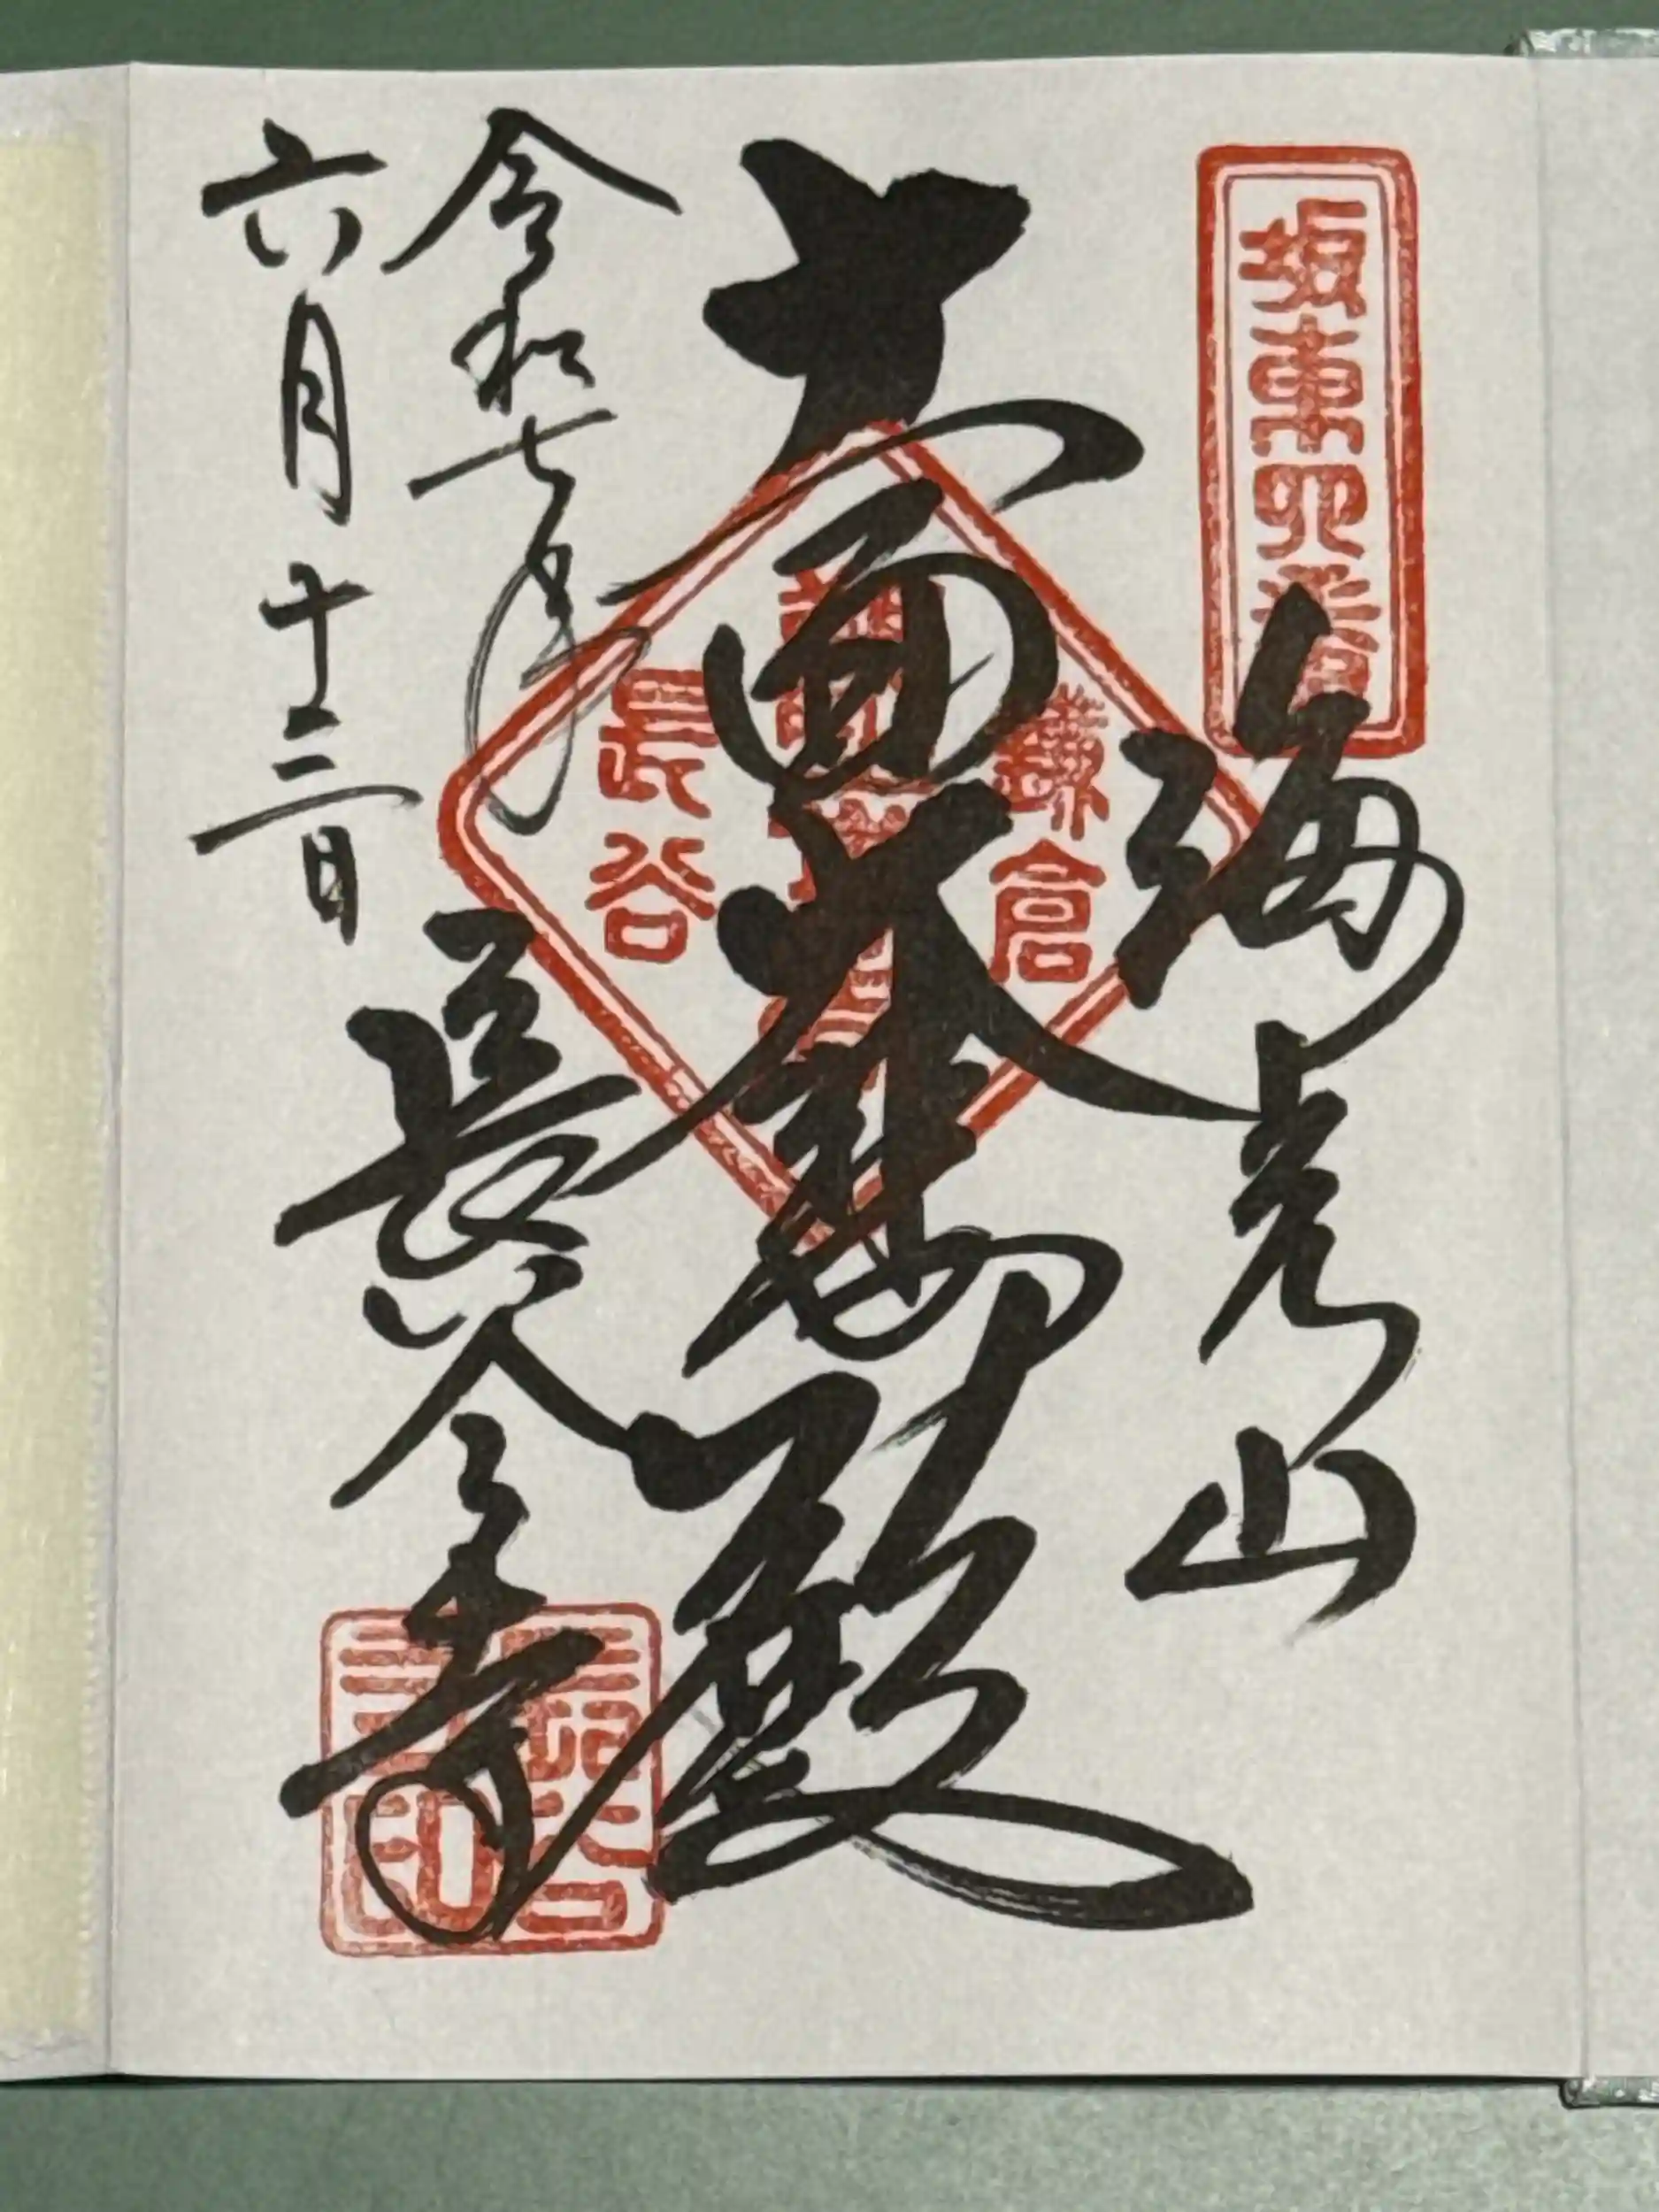 坂東四番
海光山
十一面大悲殿
鎌倉
長谷
長谷寺
令和七年
六月十三日